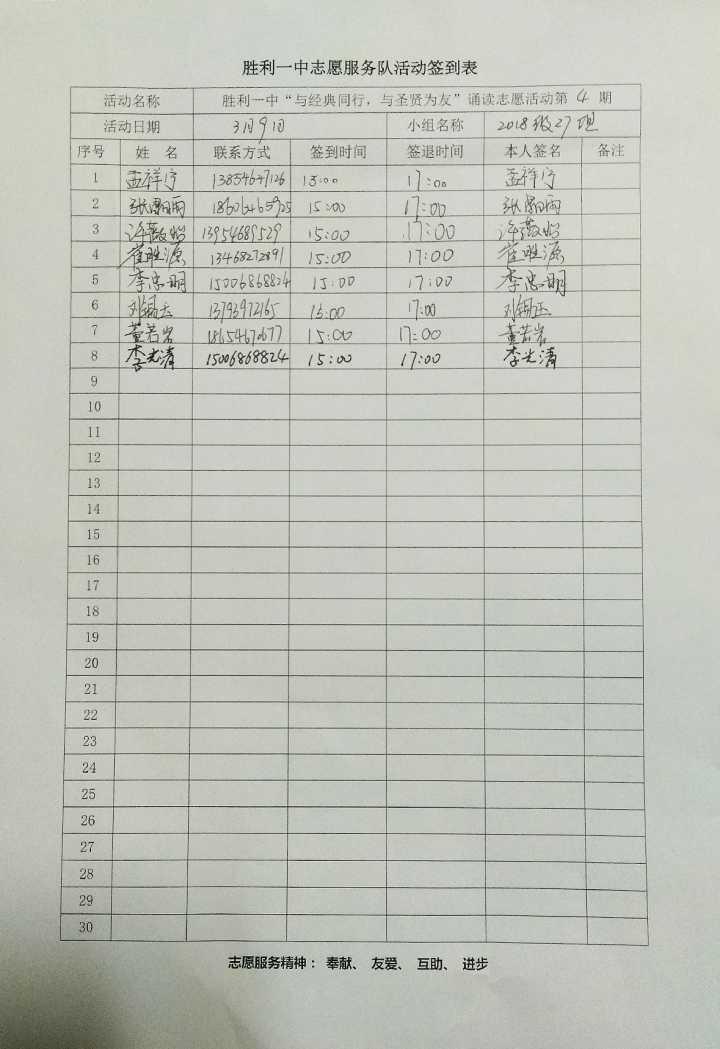 胜利一中志愿服务队活动签到表
活动名称 胜利一中“与经典同行，与圣贤为友”诵读志愿活动第 4 期
活动日期 3月9日 小组名称 2018级27班
序号 姓 名 联系方式 签到时间 签退时间 本人签名 备注
1 孟祥宇 13854647126 15:00 17:00 孟祥宇
2 18606465925 15:00 17:00
3 13954689529 15:00 17:00
4 崔胜源 13468272891 15:00 17:00 崔胜源
5 李忠明 15006868824 15:00 17:00 李忠明
6 13793972165 15:00 17:00
7 董若岩 18654670677 15:00 17:00 董若岩
8 李光清 15006868824 15:00 17:00 李光清
9
10
11
12
13
14
15
16
17
18
19
20
21
22
23
24
25
26
27
28
29
30
志愿服务精神： 奉献、 友爱、 互助、 进步